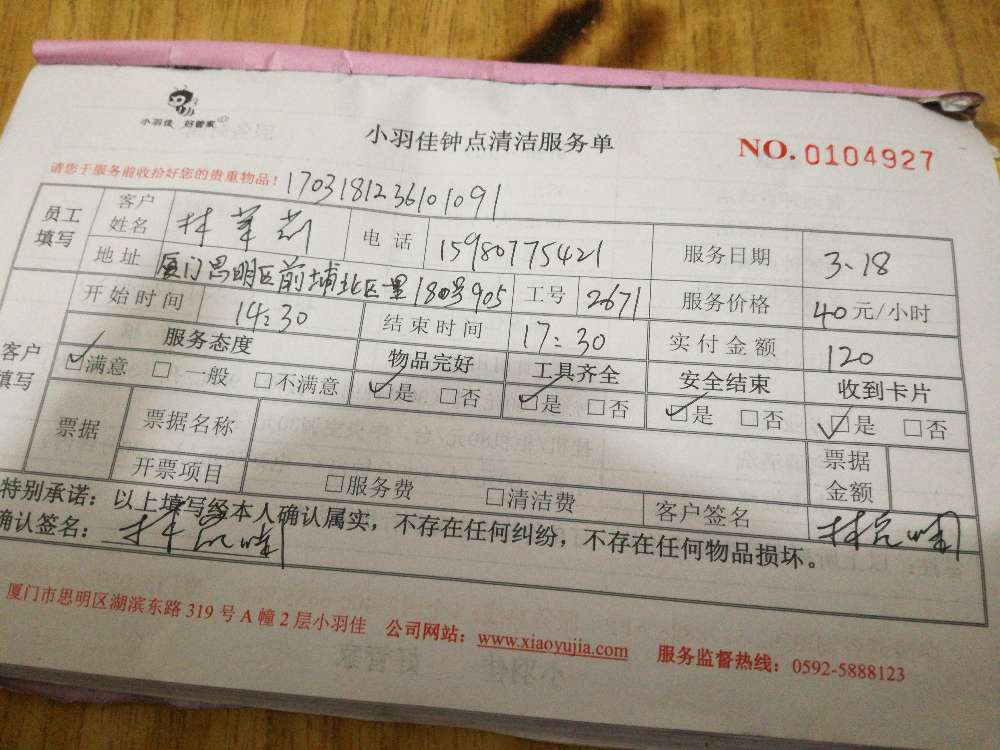 小羽佳 好管家
小羽佳钟点清洁服务单
NO. 0104927
请您于服务前收拾好您的贵重物品! 1703181236101091
员工填写 客户姓名 林 电话 15980775421 服务日期 3.18
地址 厦门思明区前埔北区一里180号905 工号 2671 服务价格 40元/小时
开始时间 14:30 结束时间 17:30 实付金额 120
客户填写 服务态度 物品完好 工具齐全 安全结束 收到卡片
☑满意 □一般 □不满意 ☑是 □否 ☑是 □否 ☑是 □否 ☑是 □否
票据 票据名称 票据金额
开票项目 □服务费 □清洁费 客户签名 林
特别承诺:以上填写经本人确认属实,不存在任何纠纷,不存在任何物品损坏。
确认签名: 林
厦门市思明区湖滨东路 319 号 A 幢 2 层小羽佳 公司网站:www.xiaoyujia.com 服务监督热线:0592-5888123